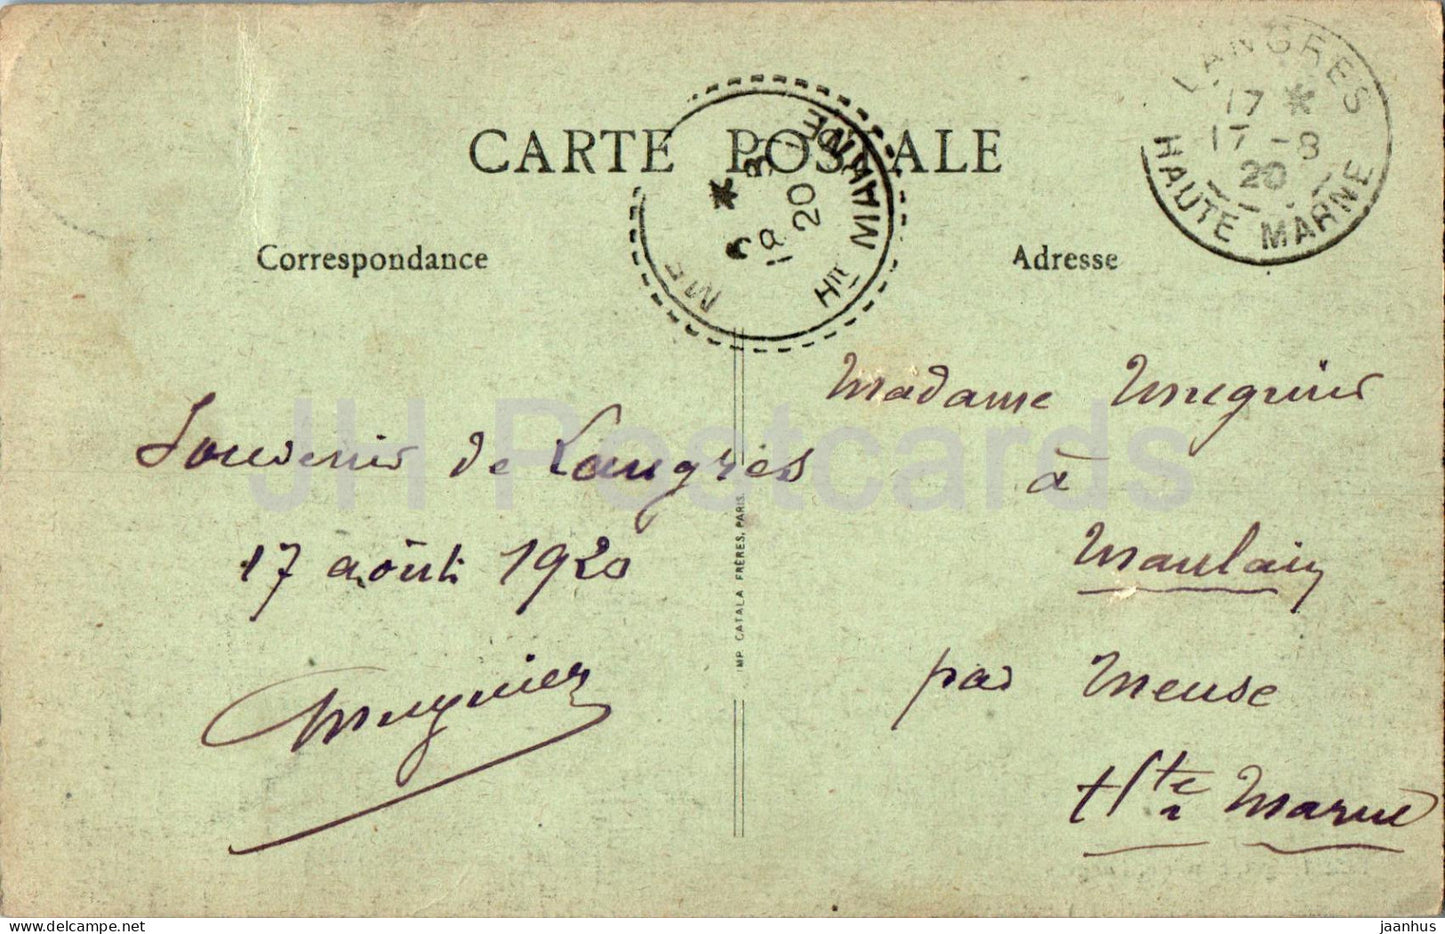 CARTE POSTALE
LANGRES
17 *
17 - 8
20
HAUTE MARNE
Hte MARNE
18 - 8
20
Correspondance
Adresse
Souvenir de Langres
17 août 1920
Mugnier
Madame Mugnier
à
Maulain
par Meuse
Hte Marne
IMP. CATALA FRÈRES, PARIS.
JH Postcards
jaanhus